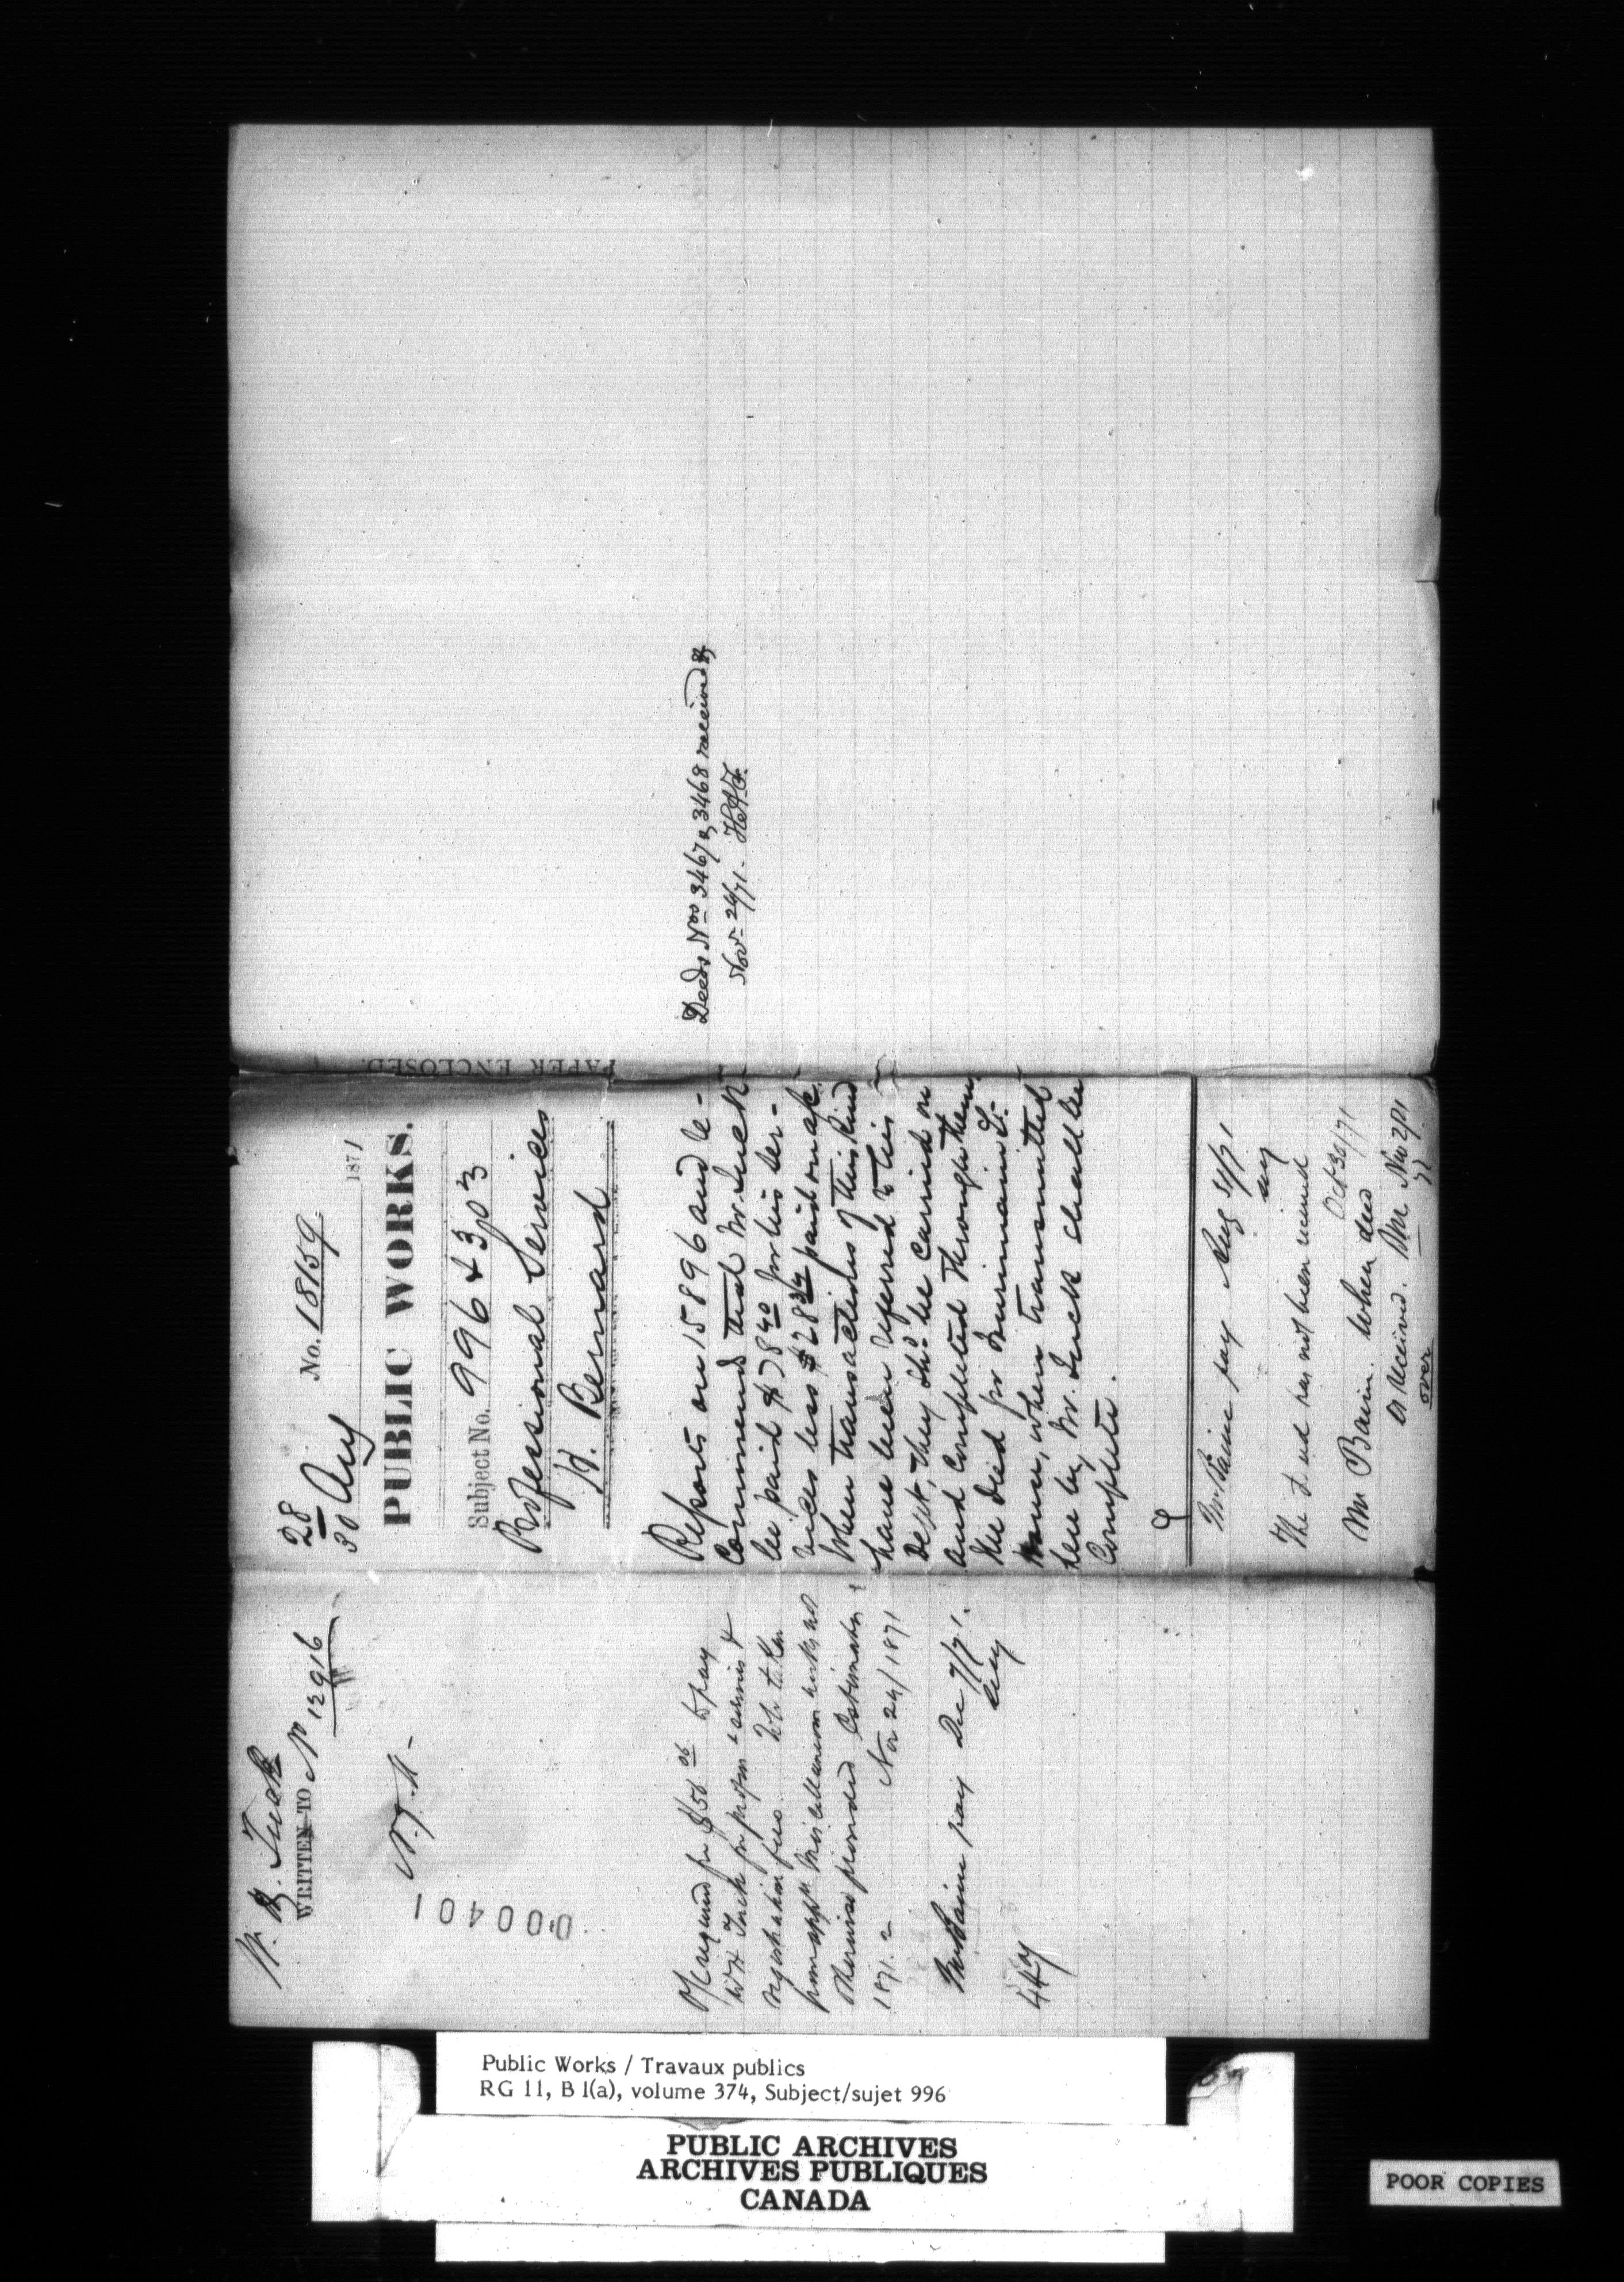 W. H. Tuck
WRITTEN TO No 12916
N.J.M.
000401
Off regund for $50 06 to pay
W H Tuck for profess services &
registration fees. to be taken
from appn Miscellaneous works not
otherwise provided Estimates
1871.2 Nov 24/1871
Mr Baine pay Dec 7/71.
44y
28
30 Aug No. 18159 1871
PUBLIC WORKS.
Subject No. 996 & 303
Professional Services
H. Bernard
Reports on 15896 and re-
commend that Mr. Tuck
be paid $78 40 for his ser-
vices less $28 34 paid on a/c.
When transactions of this kind
have been referred to this
Dept, they shd be carried on
and completed through them.
The Deed
when transmitted
here by Mr. Tuck shall be
complete.
Mr Baine pay Aug 31/71
The deed has not been received
Oct 30/71
Mr Baine. When deed
is received. Nov 2/71
over
PAPER ENCLOSED.
Deeds Nos 3467 & 3468 received
Nov 24/71 -
Public Works / Travaux publics
RG 11, B 1(a), volume 374, Subject/sujet 996
PUBLIC ARCHIVES
ARCHIVES PUBLIQUES
CANADA
POOR COPIES